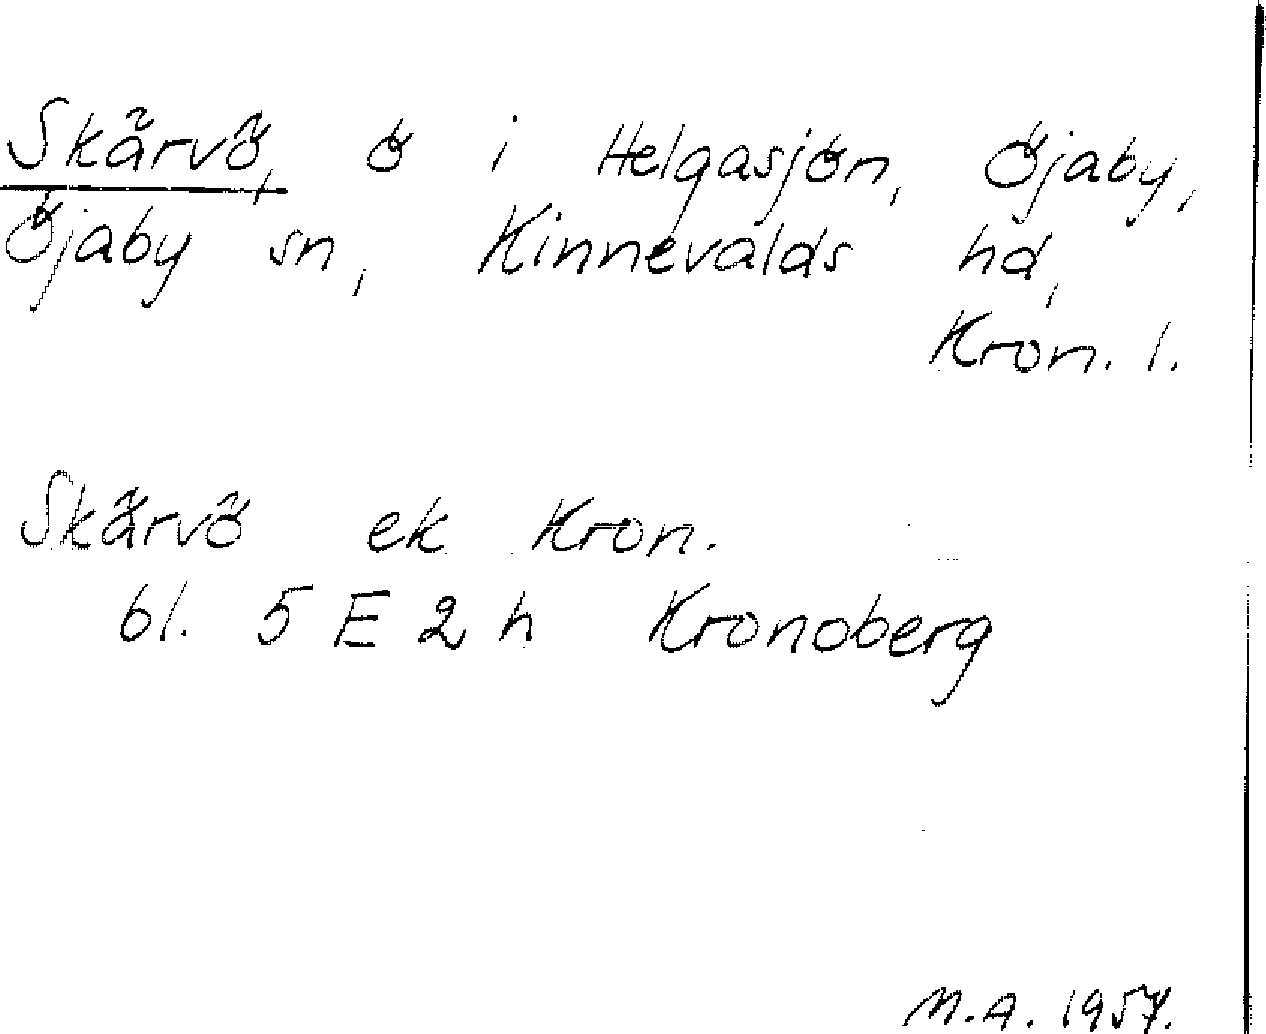 Skärvö, ö i Helgasjön, Öjaby,
Öjaby sn, Kinnevalds hd,
Kron. l.
Skärvö ek Kron.
bl. 5 E 2 h Kronoberg
M.A. 1957.